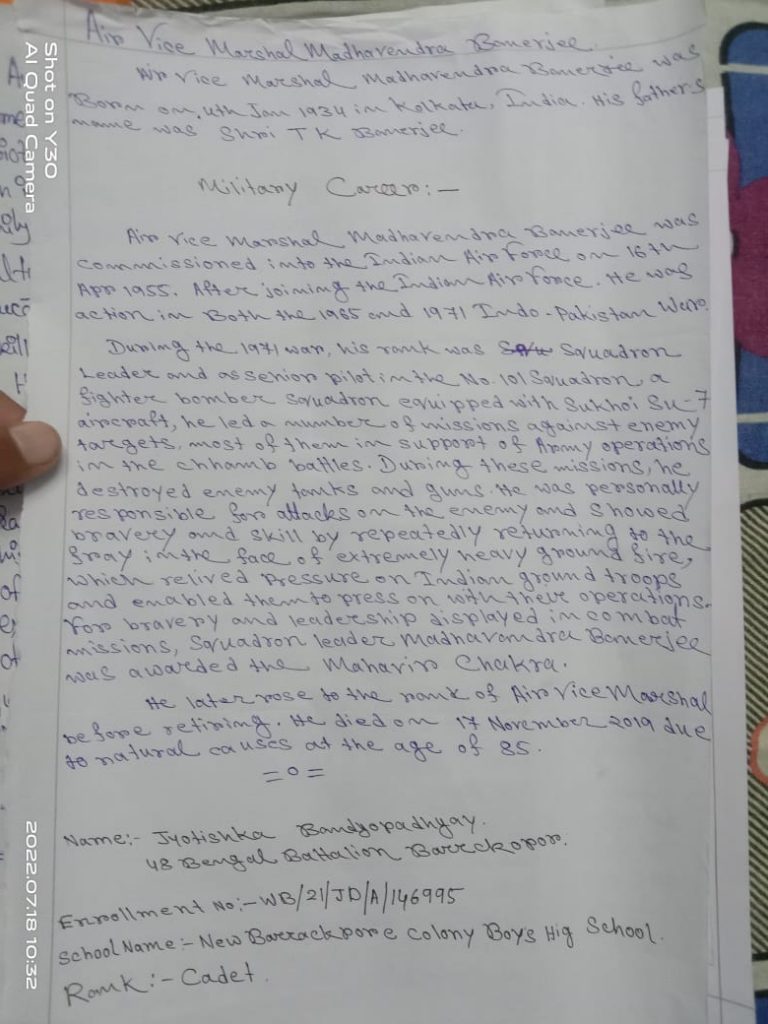 Air Vice Marshal Madhavendra Banerjee.
Air Vice Marshal Madhavendra Banerjee was
Born on, 4th Jan 1934 in Kolkata, India. His fathers
name was Shri T K Banerjee.
Military Career:-
Air Vice Marshal Madhavendra Banerjee was
commissioned into the Indian Air Force on 16th
Apr 1955. After joining the Indian Air Force. He was
action in Both the 1965 and 1971 Indo-Pakistan War.
During the 1971 war, his rank was Squadron
Leader and as senior pilot in the No. 101 Squadron, a
fighter bomber squadron equipped with Sukhoi Su-7
aircraft, he led a number of missions against enemy
targets, most of them in support of Army operations
in the chhamb battles. During these missions, he
destroyed enemy tanks and guns. He was personally
responsible for attacks on the enemy and showed
bravery and skill by repeatedly returning to the
fray in the face of extremely heavy ground fire,
which relived pressure on Indian ground troops
and enabled them to press on with their operations.
For bravery and leadership displayed in combat
missions, Squadron leader Madhavandra Banerjee
was awarded the Mahavir Chakra.
He later rose to the rank of Air Vice Marshal
before retiring. He died on 17 November 2019 due
to natural causes at the age of 85.
=0=
Name:- Jyotishka Bandyopadhyay.
48 Bengal Battalion Barrckopor.
Enrollment No:- WB/21/JD/A/146995
School Name:- New Barrackpore Colony Boys Hig School.
Rank:- Cadet.
Shot on Y30
AI Quad Camera
2022.07.18 10:32